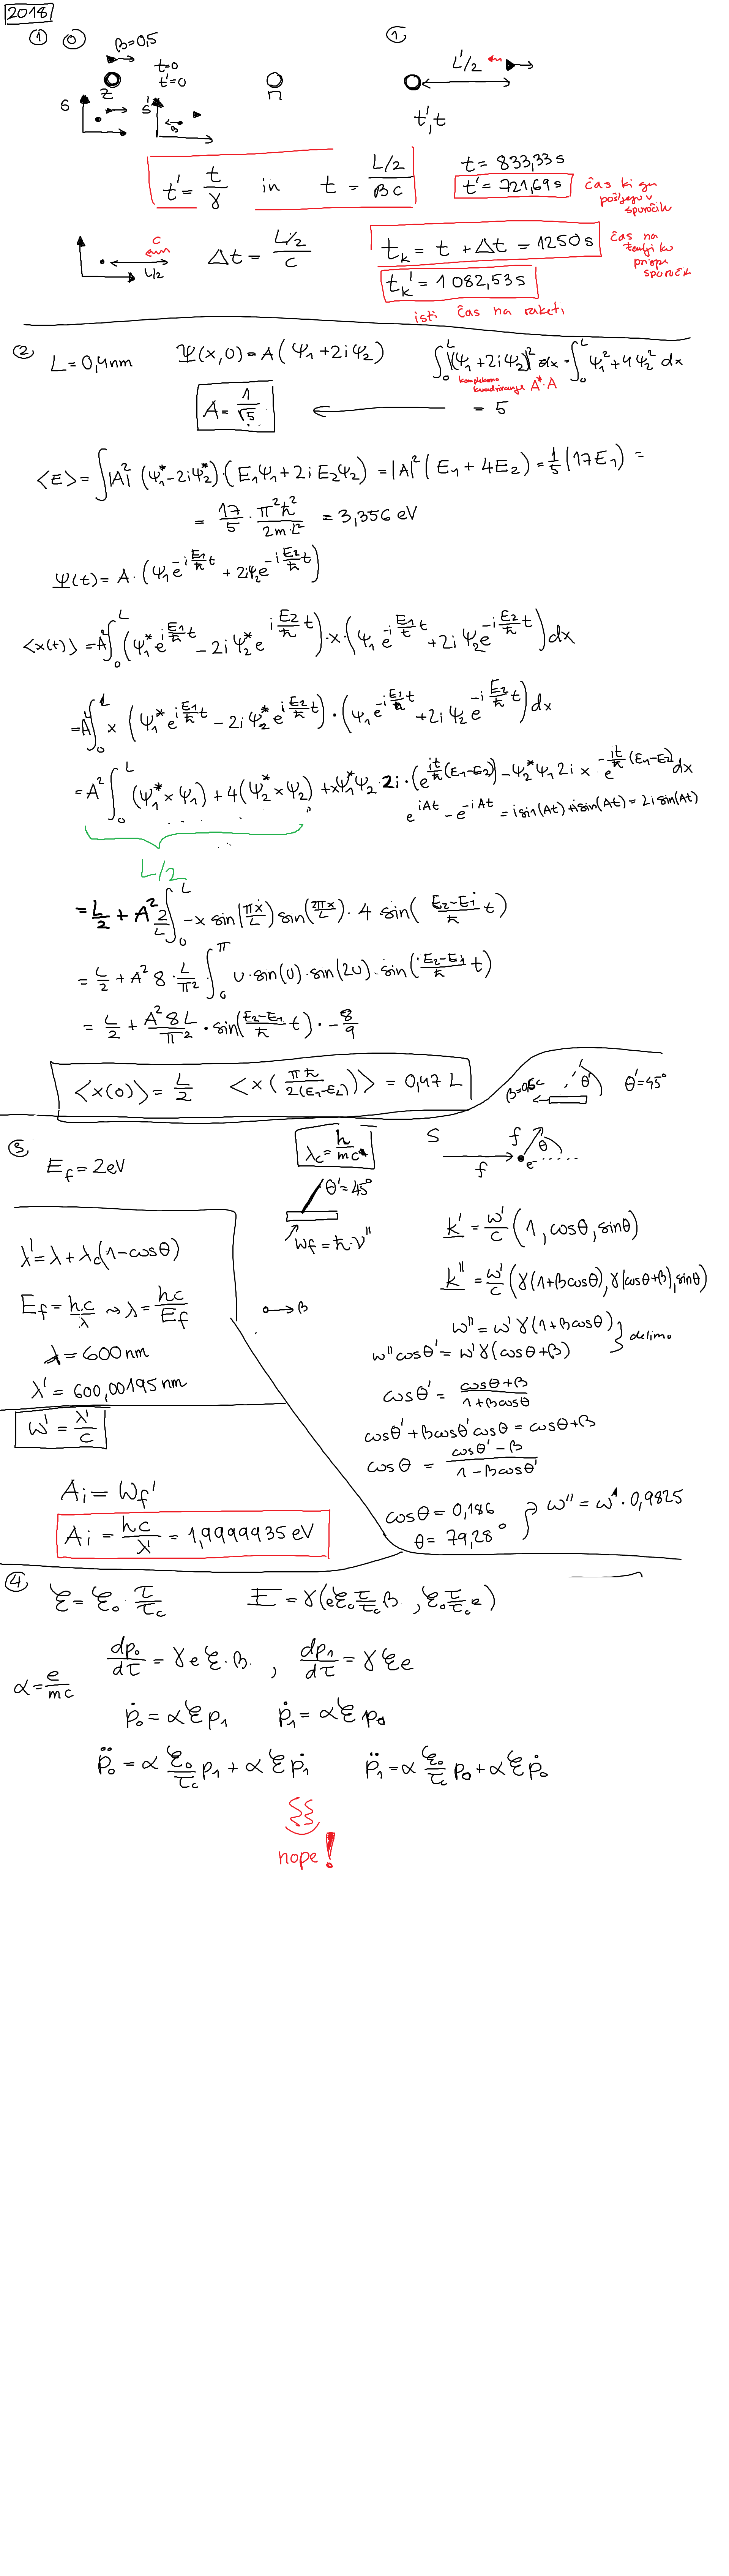 2018
① ⓪ β=0,5 ①
t=0
t'=0
L'/2
Z n
S S'
β
t', t
t' = t/γ in t = (L/2)/(βc)
t = 833,33 s
t' = 721,69 s
čas ki ga
pošljejo v
sporočilu
c
L/2
Δt = (L/2)/c
t_k = t + Δt = 1250 s
čas na
zemlji ko
prispe
sporočilo
t_k' = 1 082,53 s
isti čas na raketi
② L = 0,4 nm Ψ(x,0) = A(Ψ₁ + 2iΨ₂) ∫₀ᴸ |(Ψ₁ + 2iΨ₂)|² dx = ∫₀ᴸ Ψ₁² + 4Ψ₂² dx
kompleksno
kvadriranje A*·A
A = 1/√5 ← = 5
<E> = ∫|A|² (Ψ₁* - 2iΨ₂*)·(E₁Ψ₁ + 2iE₂Ψ₂) = |A|² (E₁ + 4E₂) = 1/5 (17E₁) =
= 17/5 · π²ħ²/(2m·L²) = 3,356 eV
Ψ(t) = A·(Ψ₁e^(-i E₁/ħ t) + 2iΨ₂e^(-i E₂/ħ t))
<x(t)> = A²∫₀ᴸ (Ψ₁* e^(i E₁/ħ t) - 2iΨ₂* e^(i E₂/ħ t))·x·(Ψ₁ e^(-i E₁/ħ t) + 2iΨ₂e^(-i E₂/ħ t))dx
= A²∫₀ᴸ x (Ψ₁* e^(i E₁/ħ t) - 2iΨ₂* e^(i E₂/ħ t))·(Ψ₁e^(-i E₁/ħ t) + 2iΨ₂e^(-i E₂/ħ t))dx
= A² ∫₀ᴸ (Ψ₁* x Ψ₁) + 4(Ψ₂* x Ψ₂) + xΨ₁*Ψ₂·2i·(e^(it/ħ (E₁-E₂)) - Ψ₂*Ψ₁ 2i x · e^(-it/ħ (E₁-E₂)) dx
e^(iAt) - e^(-iAt) = i sin(At) + i sin(At) = 2i sin(At)
L/2
= L/2 + A² 2/L ∫₀ᴸ -x sin(πx/L) sin(2πx/L)·4 sin((E₂-E₁)/ħ t)
= L/2 + A² 8·L/π² ∫₀^π u·sin(u)·sin(2u)·sin((E₂-E₁)/ħ t)
= L/2 + A²8L/π² · sin((E₂-E₁)/ħ t)·-8/9
<x(0)> = L/2 <x(πħ/(2(E₁-E₂)))> = 0,47 L
β=0,6c θ' θ'=45°
③ E_f = 2eV
λ_c = h/mc
S f f θ e⁻
θ'=45°
W_f = ħ·ν''
λ' = λ + λ_c(1-cosθ)
k' = ω'/c (1, cosθ, sinθ)
k'' = ω'/c (γ(1+βcosθ), γ(cosθ+β), sinθ)
E_f = h·c/λ ⇝ λ = hc/E_f
→β
ω'' = ω'γ(1+βcosθ)
ω''cosθ' = ω'γ(cosθ+β) } delimo
λ = 600 nm
λ' = 600,00195 nm
cosθ' = (cosθ+β)/(1+βcosθ)
ω' = λ'/c
cosθ' + βcosθ'cosθ = cosθ+β
cosθ = (cosθ'-β)/(1-βcosθ')
A_i = W_f'
A_i = hc/λ' = 1,9999935 eV
cosθ = 0,186
θ = 79,28° } ω'' = ω'·0,9825
④ ℰ = ℰ₀·τ/τ_c F = γ(eℰ₀ τ/τ_c β, ℰ₀ τ/τ_c e)
α = e/mc
dp₀/dτ = γeℰ·β, dp₁/dτ = γℰe
ṗ₀ = αℰp₁ ṗ₁ = αℰp₀
p̈₀ = α ℰ₀/τ_c p₁ + αℰṗ₁ p̈₁ = α ℰ₀/τ_c p₀ + αℰṗ₀
nope!